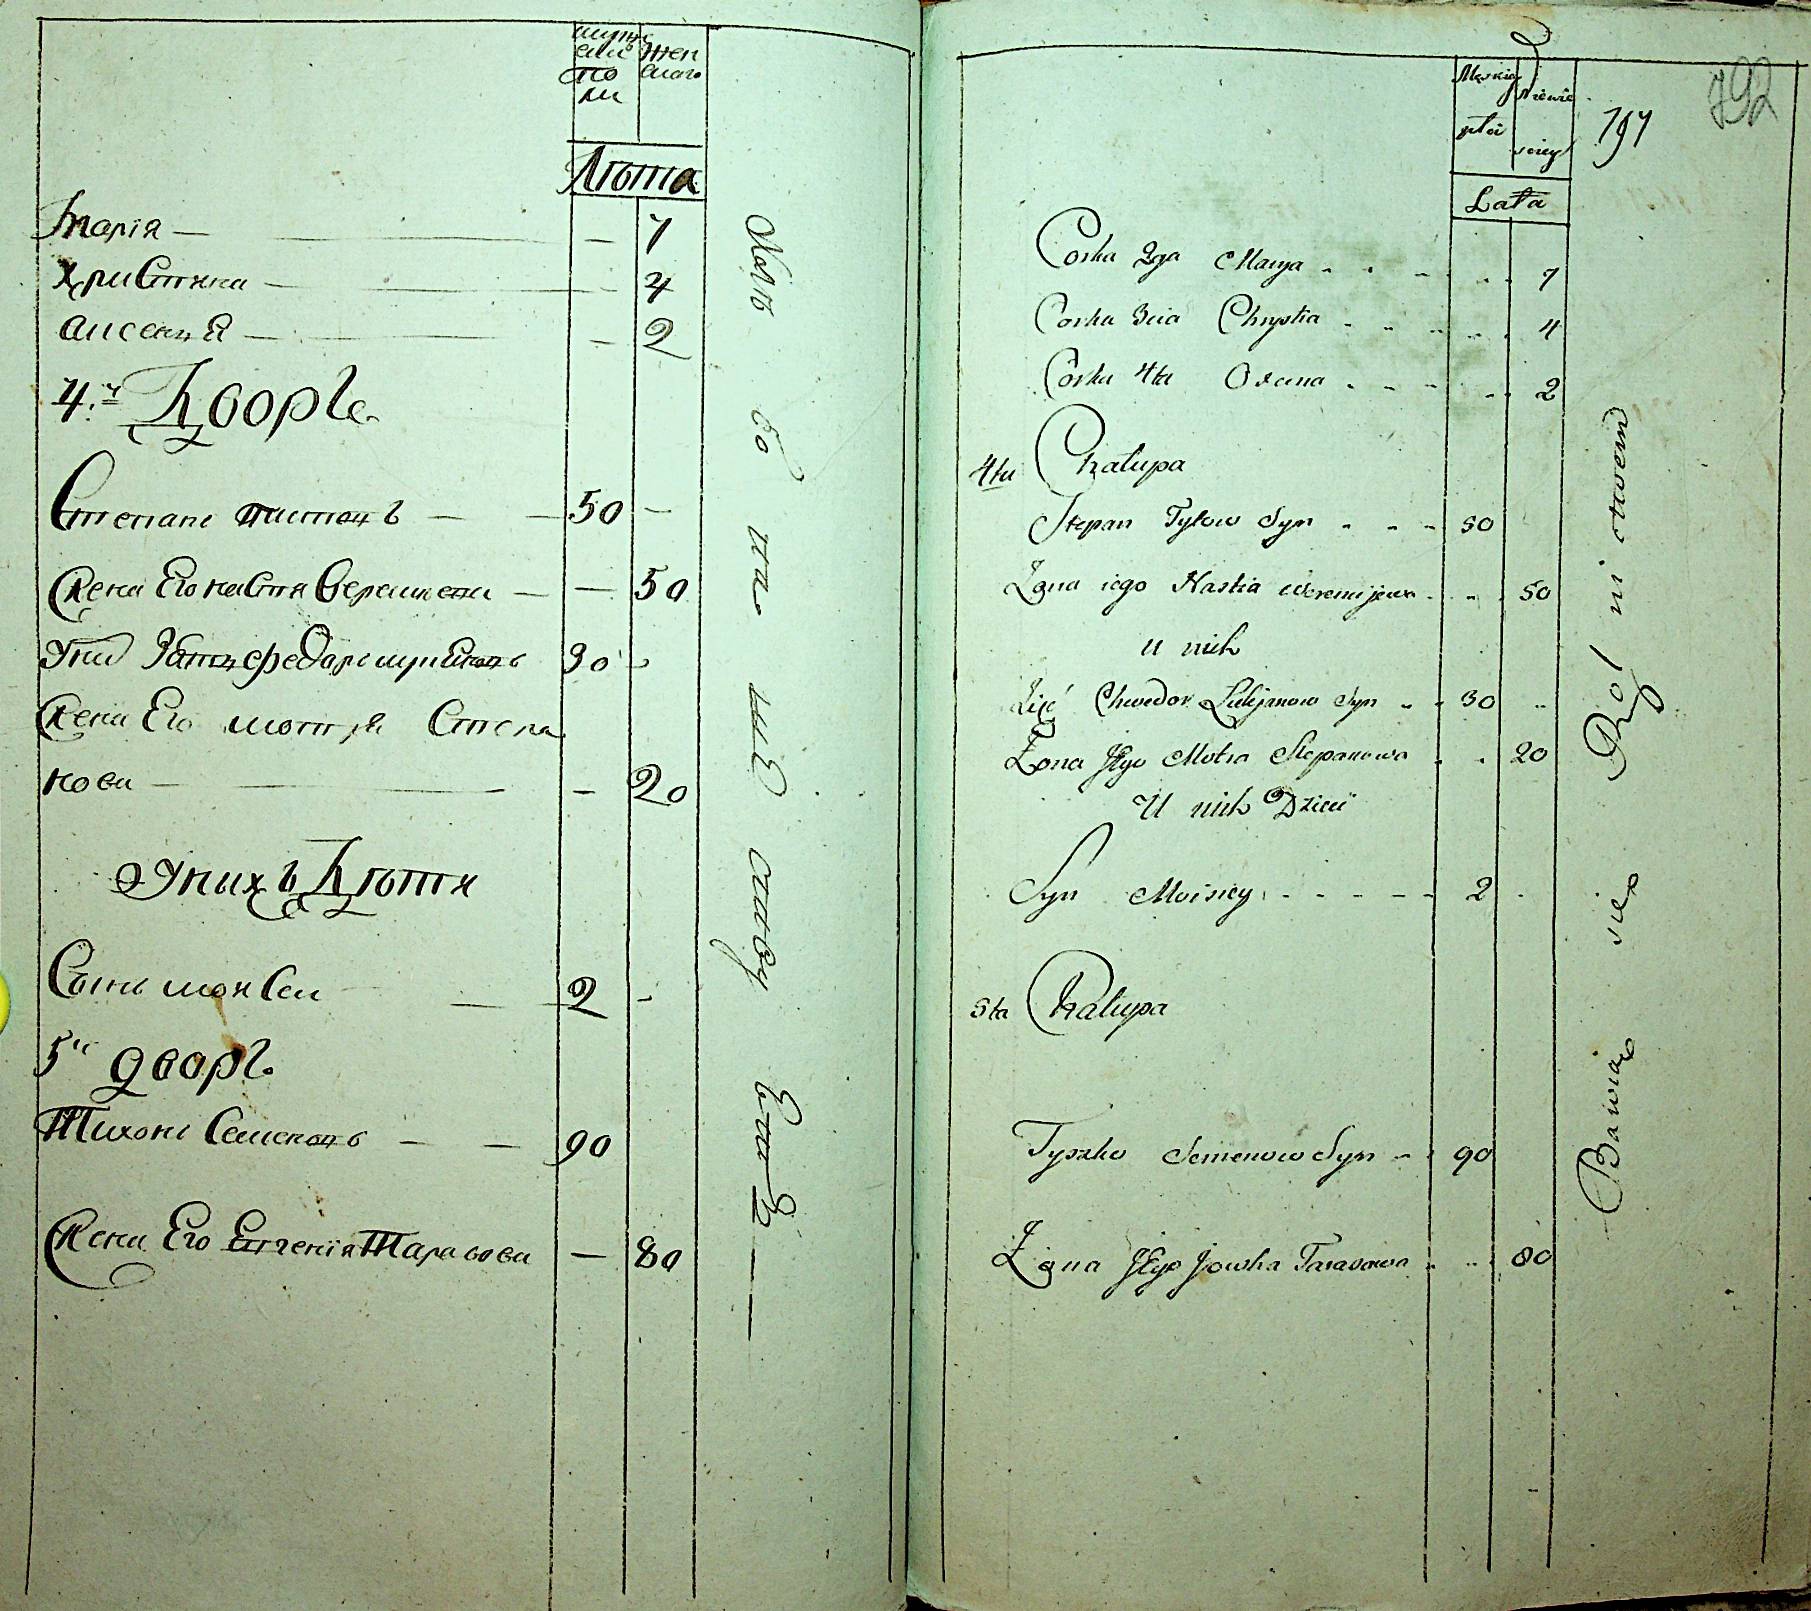 мужеска
по
ла
Жен
скаго
Лѣта
Марія — — 7
Христина — 4
аксенія — — 2
4.й Дворъ
Степанъ титовъ — — 50 —
Жена Его настя Веремиева — — 50
Жена Его мотря Степа
нова — — 20
У нихъ Дѣти
Сынъ моисей — 2 -
5й дворъ
Тихонъ Семеновъ — — 90
Жена Его Евгенія Тарасова — 80
Męskiey
płci
Niewie
sciey
797
792
Lata
Corka 2ga Marya - - - - 7
Corka 3cia Chrystia - - - - 4
Corka 4ta Oxena - - - - 2
4ta Chałupa
Stepan Tytow Syn - - - 50
Żona iego Nastia Weremijewa - - 50
U nich
Zięć Chwedor Lukjanow Syn - - 30
Żona Jego Motra Stepanowa - - 20
U nich Dzieci
Syn Moisiey - - - - - 2
5ta Chałupa
Tyszko Semenow Syn - - 90
Żona Jego Jowka Tarasowa - - 80
Bawią się Rol ni ctwem